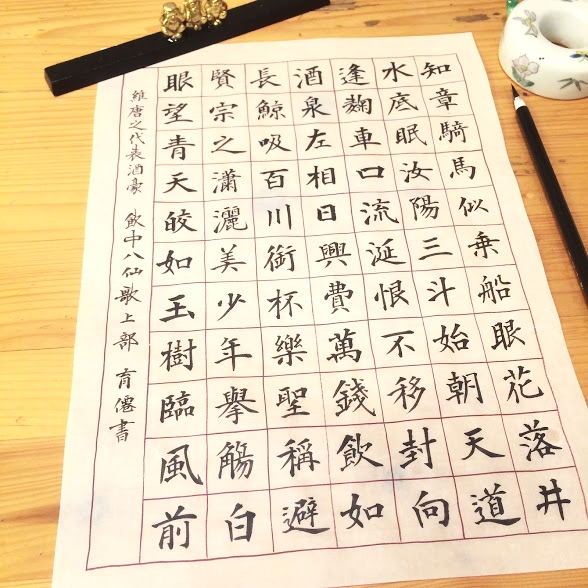 知章騎馬似乗船眼花落井
水底眠汝陽三斗始朝天道
逢麹車口流涎恨不移封向
酒泉左相日興費萬錢飲如
長鯨吸百川銜杯樂聖稱避
賢宗之瀟灑美少年舉觴白
眼望青天皎如玉樹臨風前
維唐之代表酒豪 飲中八仙歌上部 育僊書